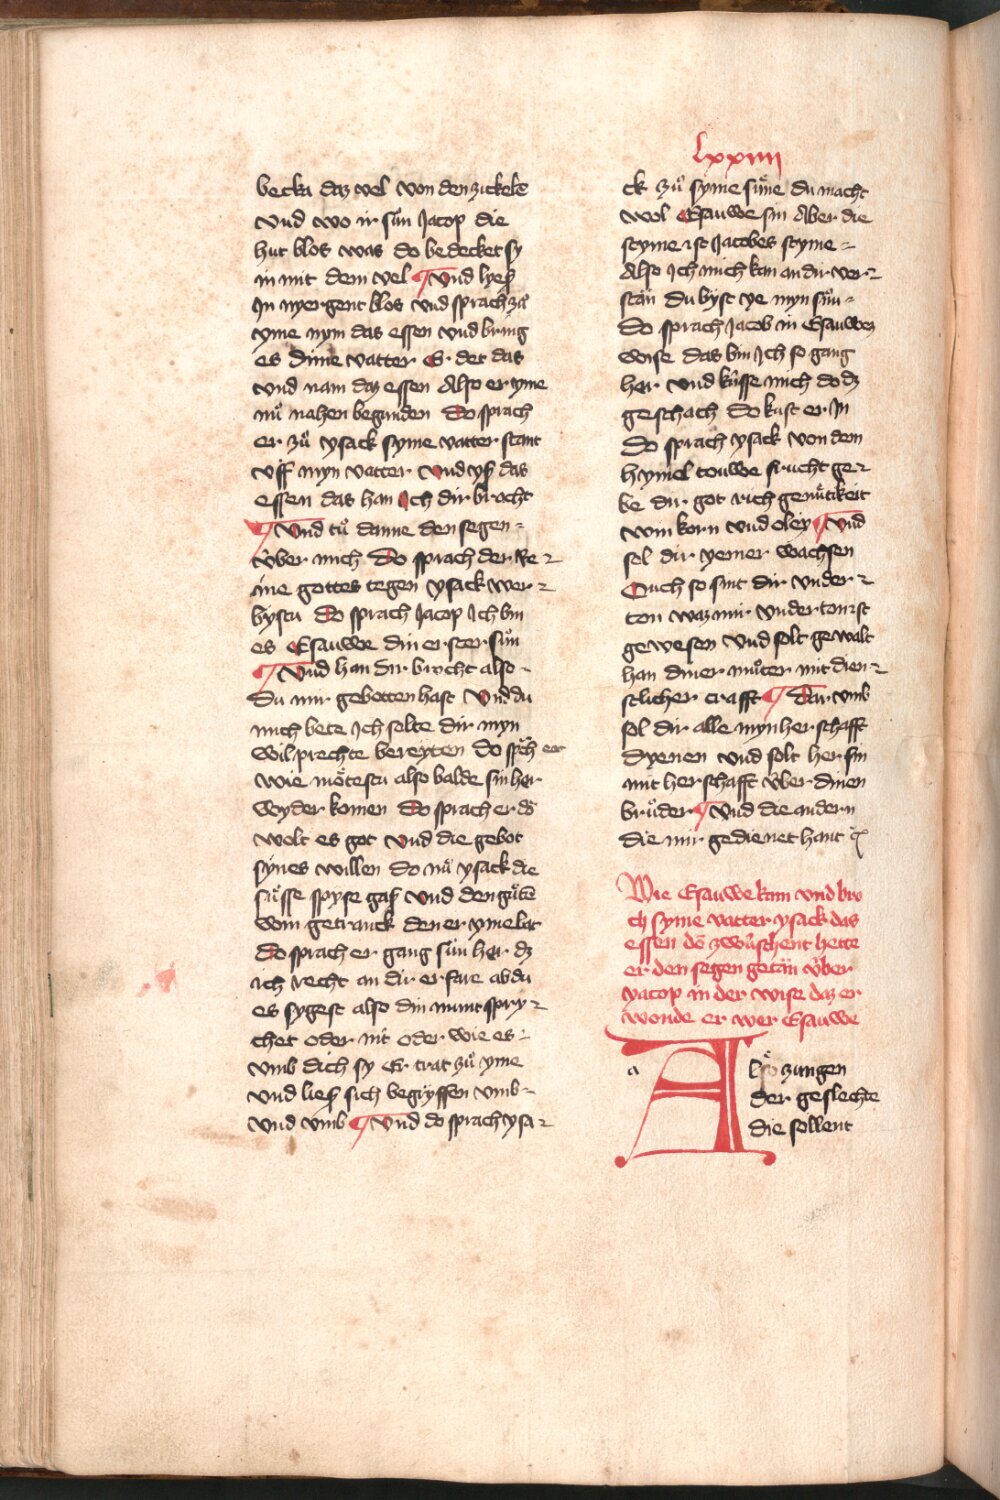 lxxiiii
becka daz vel von den zickelē
vnd wo ir sůn Jacop die
hut blos was do bedecket sy
in mit dem vel ¶ vnd lyeß
In nyergent blos vnd sprach zů
yme nym das essen vnd bring
es dime vatter Er det das
vnd nam daz essen Also er yme
nů nahen begunden Do sprach
er zů ysack syme vatter stant
vff myn vatter vnd yß das
essen das han Ich dir brocht
¶ vnd tů danne den segen
über mich Do sprach der Re
ine gottes tegen ysack wer
bystu Do sprach Jacop Ich bin
es Esauwe din erster sůn
¶ vnd han dir brocht also
Du mir gebotten hast vnd du
mich bete Ich solte dir myn
wilprechte bereyten do sp̄ch er
wie mŏtestu also balde sin her
weyder komen Do sprach er dȯ
wolt es got vnd die gebot
synes willen do nā ysack die
sůsse spyse gaß vnd den gůtē
wom getranck den er yme bat
Do sprach er gang sůn her dz
ich recht an dir erfare ab du
es sygest also din munt spry
chet oder nit oder wie es
vmb dich sy Er trat zů yme
vnd ließ sich begryffen vmb
vnd vmb ¶ vnd do sprach ysa
ck zů syme sůne du macht
wol Esauwe sin Aber die
styme ist Jacobes styme
Also Ich mich kan an dir ver
stān du byst ye myn sůn
Do sprach Jacob in Esauwez
weise das bin Ich so gang
her vnd kůsse mich do dz
geschach Do kust er In
Do sprach ysack von dem
hymel touwe frucht ge
be dir got rich genůtikeit
win korn vnd oley ¶ vnd
sol dir yemer wachsen
Ouch so sint dir vnder
ton waz mir vnder ton ist
gewesen vnd solt gewalt
han diner můter mit dien
stlicher crafft ¶ Dar vmb
sol dir alle myn herschafft
dyenen vnd solt her sin
mit herschafft über dinen
brůder ¶ vnd die andern
die mir gedienet hant
Wie Esauwe kam vnd bro
ch syme vatter ysack das
essen dȯ zwůschent hette
er den segen getān über
yacop in der wise daz er
wonde er wer Esauwe
a
Alsŏ zungen
der geslechte
die sollent